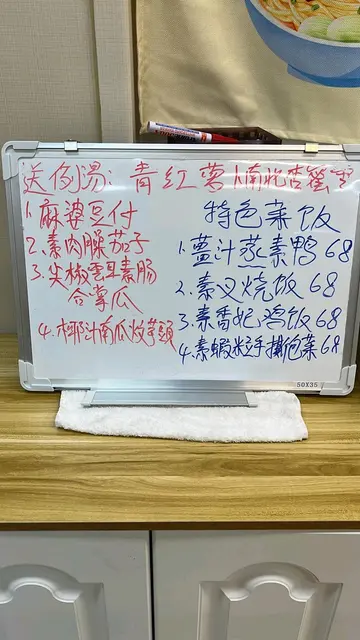 送例汤：青红萝卜南北杏蜜枣
1 麻婆豆付
2. 素肉臊茄子
3. 尖椒云耳素肠
合掌瓜
4. 椰汁南瓜炆芋頭
特色菜饭
1. 薑汁蒸素鸭 68
2. 素叉烧饭 68
3. 素香妃鸡饭 68
4. 素蝦米手撕包菜 68
50X35